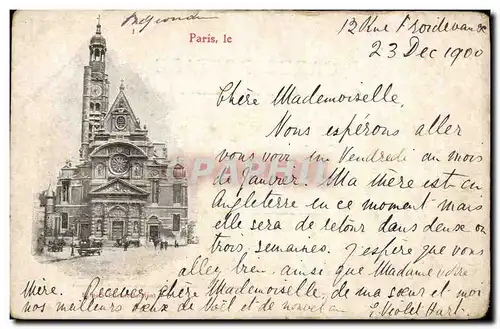 12 Rue Froidevaux
Paris, le
23 Dec 1900
Chère Mademoiselle,
Nous espérons aller
vous voir un Vendredi au mois
de Janvier. Ma Mère est en
Angleterre en ce moment mais
elle sera de retour dans deux ou
trois semaines. J'espère que vous
allez bien ainsi que Madame votre
Mère. Recevez chère Mademoiselle, de ma sœur et moi
nos meilleurs vœux de Noël et de nouvel an
Violet Hart.